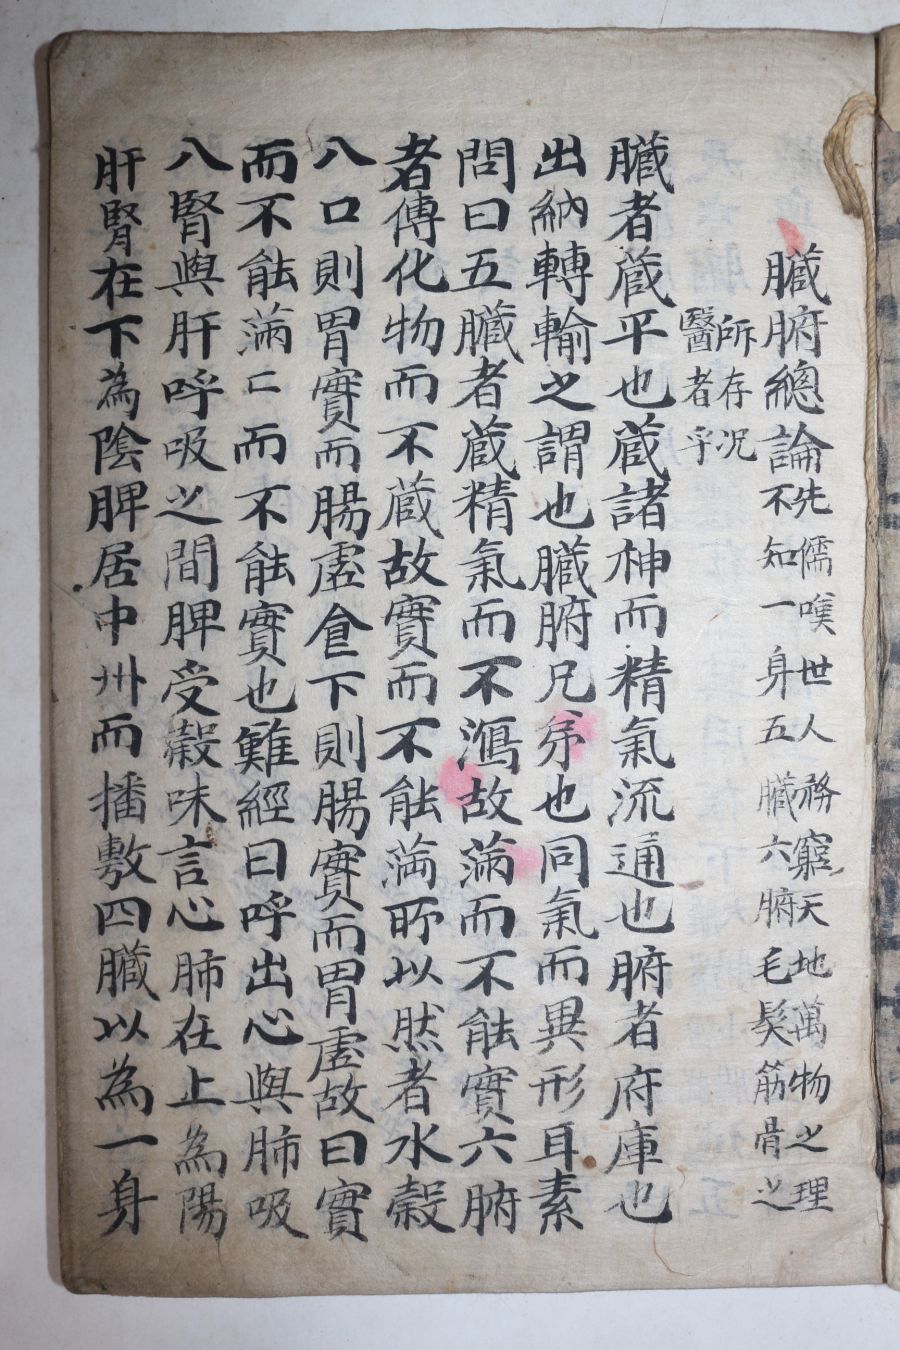 臟腑總論 先儒嘆世人務窮天地萬物之理
不知一身五臟六腑毛髮筋骨之
所存况
醫者乎
臟者蔵平也蔵諸神而精氣流通也腑者府庫也
出納轉輸之謂也臟腑兄弟也同氣而異形耳素
問曰五臟者蔵精氣而不瀉故滿而不能實六腑
者傳化物而不蔵故實而不能滿所以然者水穀
入口則胃實而腸虛食下則腸實而胃虛故曰實
而不能滿〻而不能實也難經曰呼出心與肺吸
入腎與肝呼吸之間脾受穀味言心肺在上為陽
肝腎在下為陰脾居中州而播敷四臟以為一身